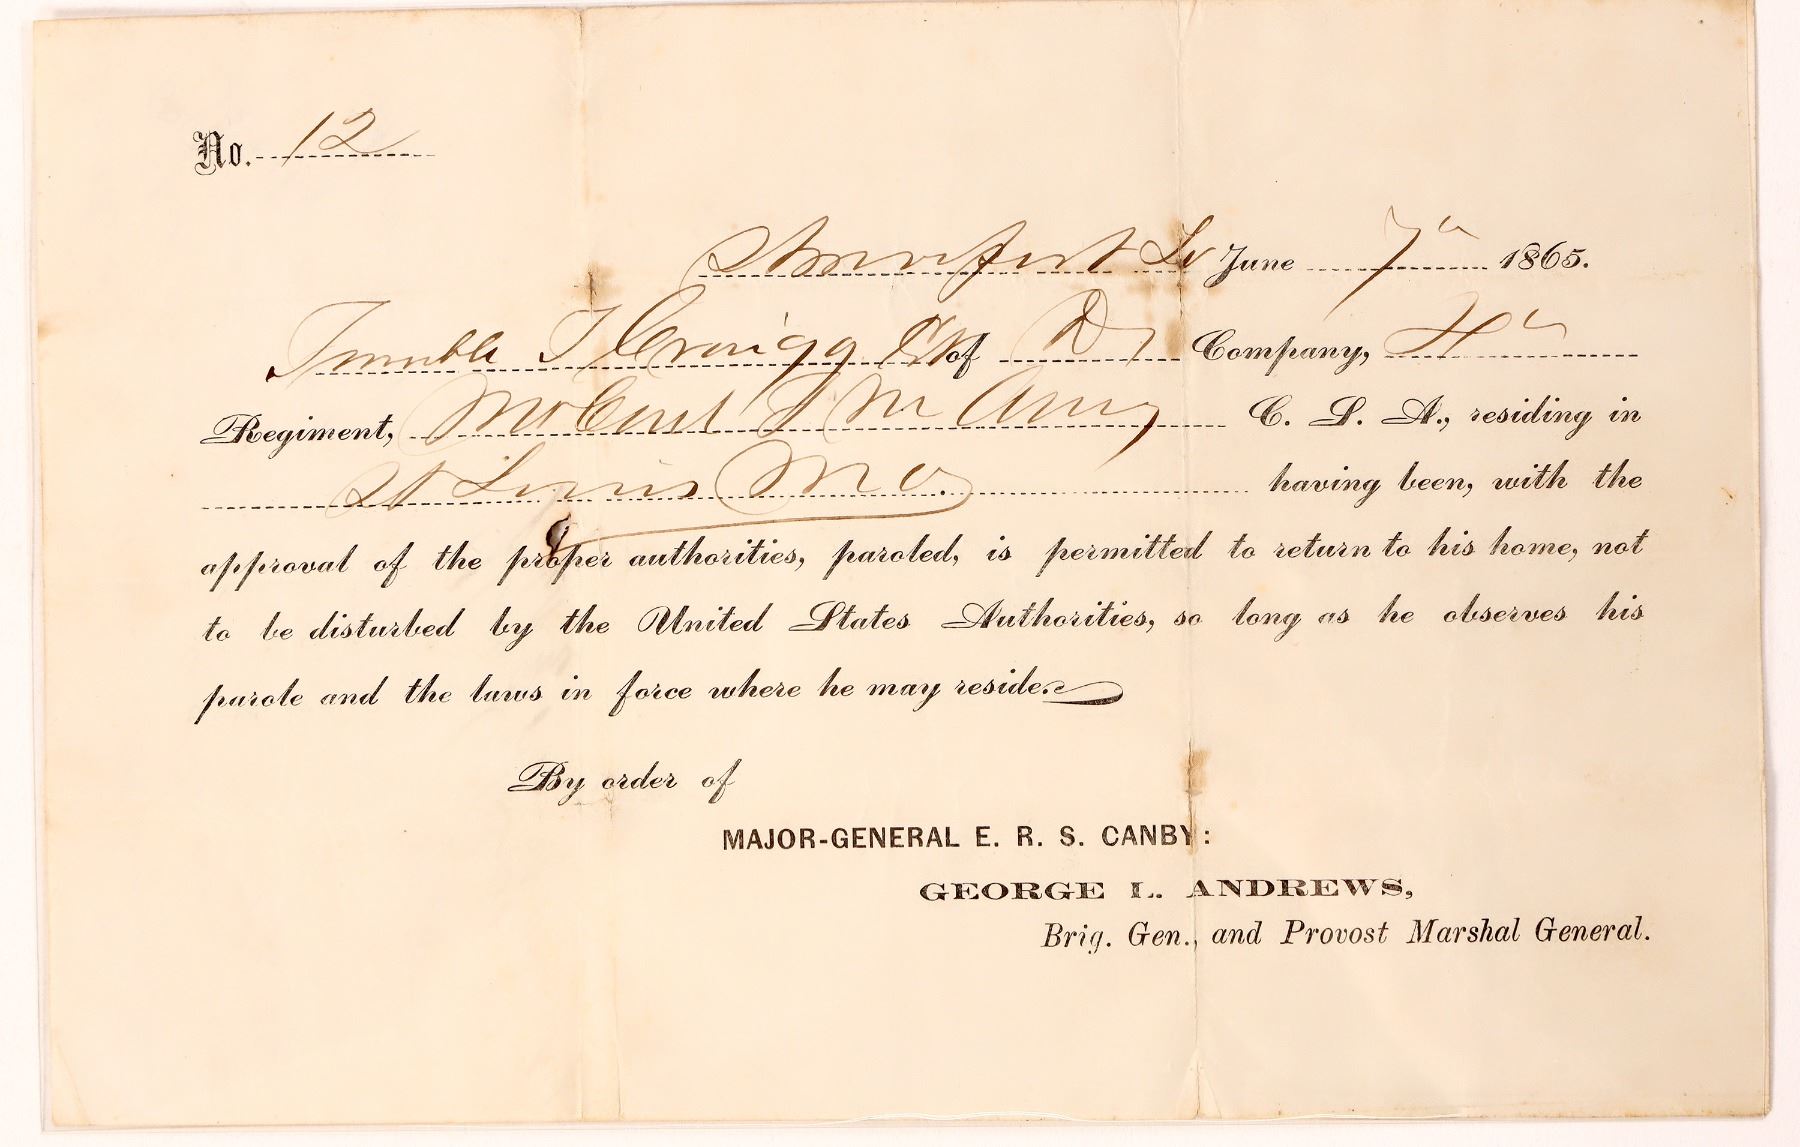 No. 12
Shreveport La June 7th 1865.
Trimble T of D Company, 4th
Regiment, Mo C. S. A., residing in
St Louis Mo. having been, with the
approval of the proper authorities, paroled, is permitted to return to his home, not
to be disturbed by the United States Authorities, so long as he observes his
parole and the laws in force where he may reside.
By order of
MAJOR-GENERAL E. R. S. CANBY:
GEORGE L. ANDREWS,
Brig. Gen., and Provost Marshal General.